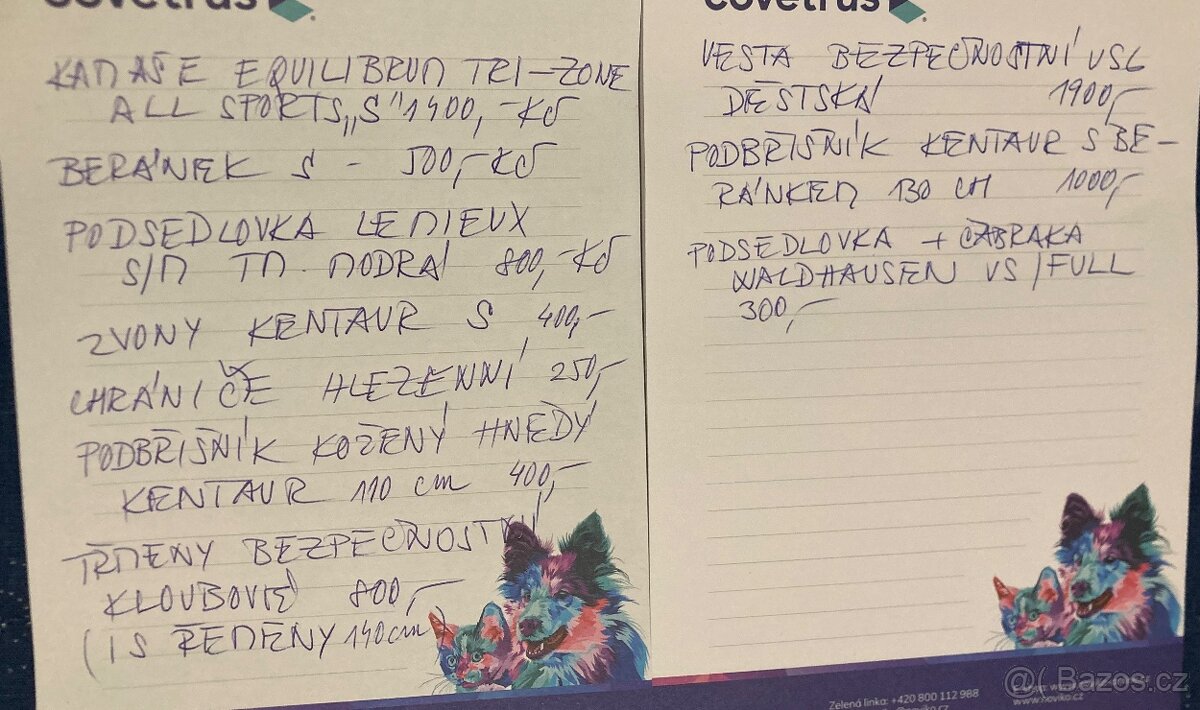 covetrus
KAMAŠE EQUILIBRUM TRI-ZONE
ALL SPORTS „S" 1400,-KČ
BERÁNEK S - 500,-KČ
PODSEDLOVKA LEMIEUX
S/M TM. MODRÁ 800,-KČ
ZVONY KENTAUR S 400,-
CHRÁNIČE HLEZENNÍ 250,-
PODBŘIŠNÍK KOŽENÝ HNĚDÝ
KENTAUR 110 cm 400,-
TŘMENY BEZPEČNOSTNÍ
KLOUBOVÉ 800,-
(I S ŘEMENY 140cm)
covetrus
VESTA BEZPEČNOSTNÍ USG
DĚSTSKÁ 1900,-
PODBŘIŠNÍK KENTAUR S BE-
RÁNKEM 130 CM 1000,-
PODSEDLOVKA + ČABRAKA
WALDHAUSEN VS/FULL
300,-
Zelená linka: +420 800 112 988
www.noviko.cz
Bazoš.cz